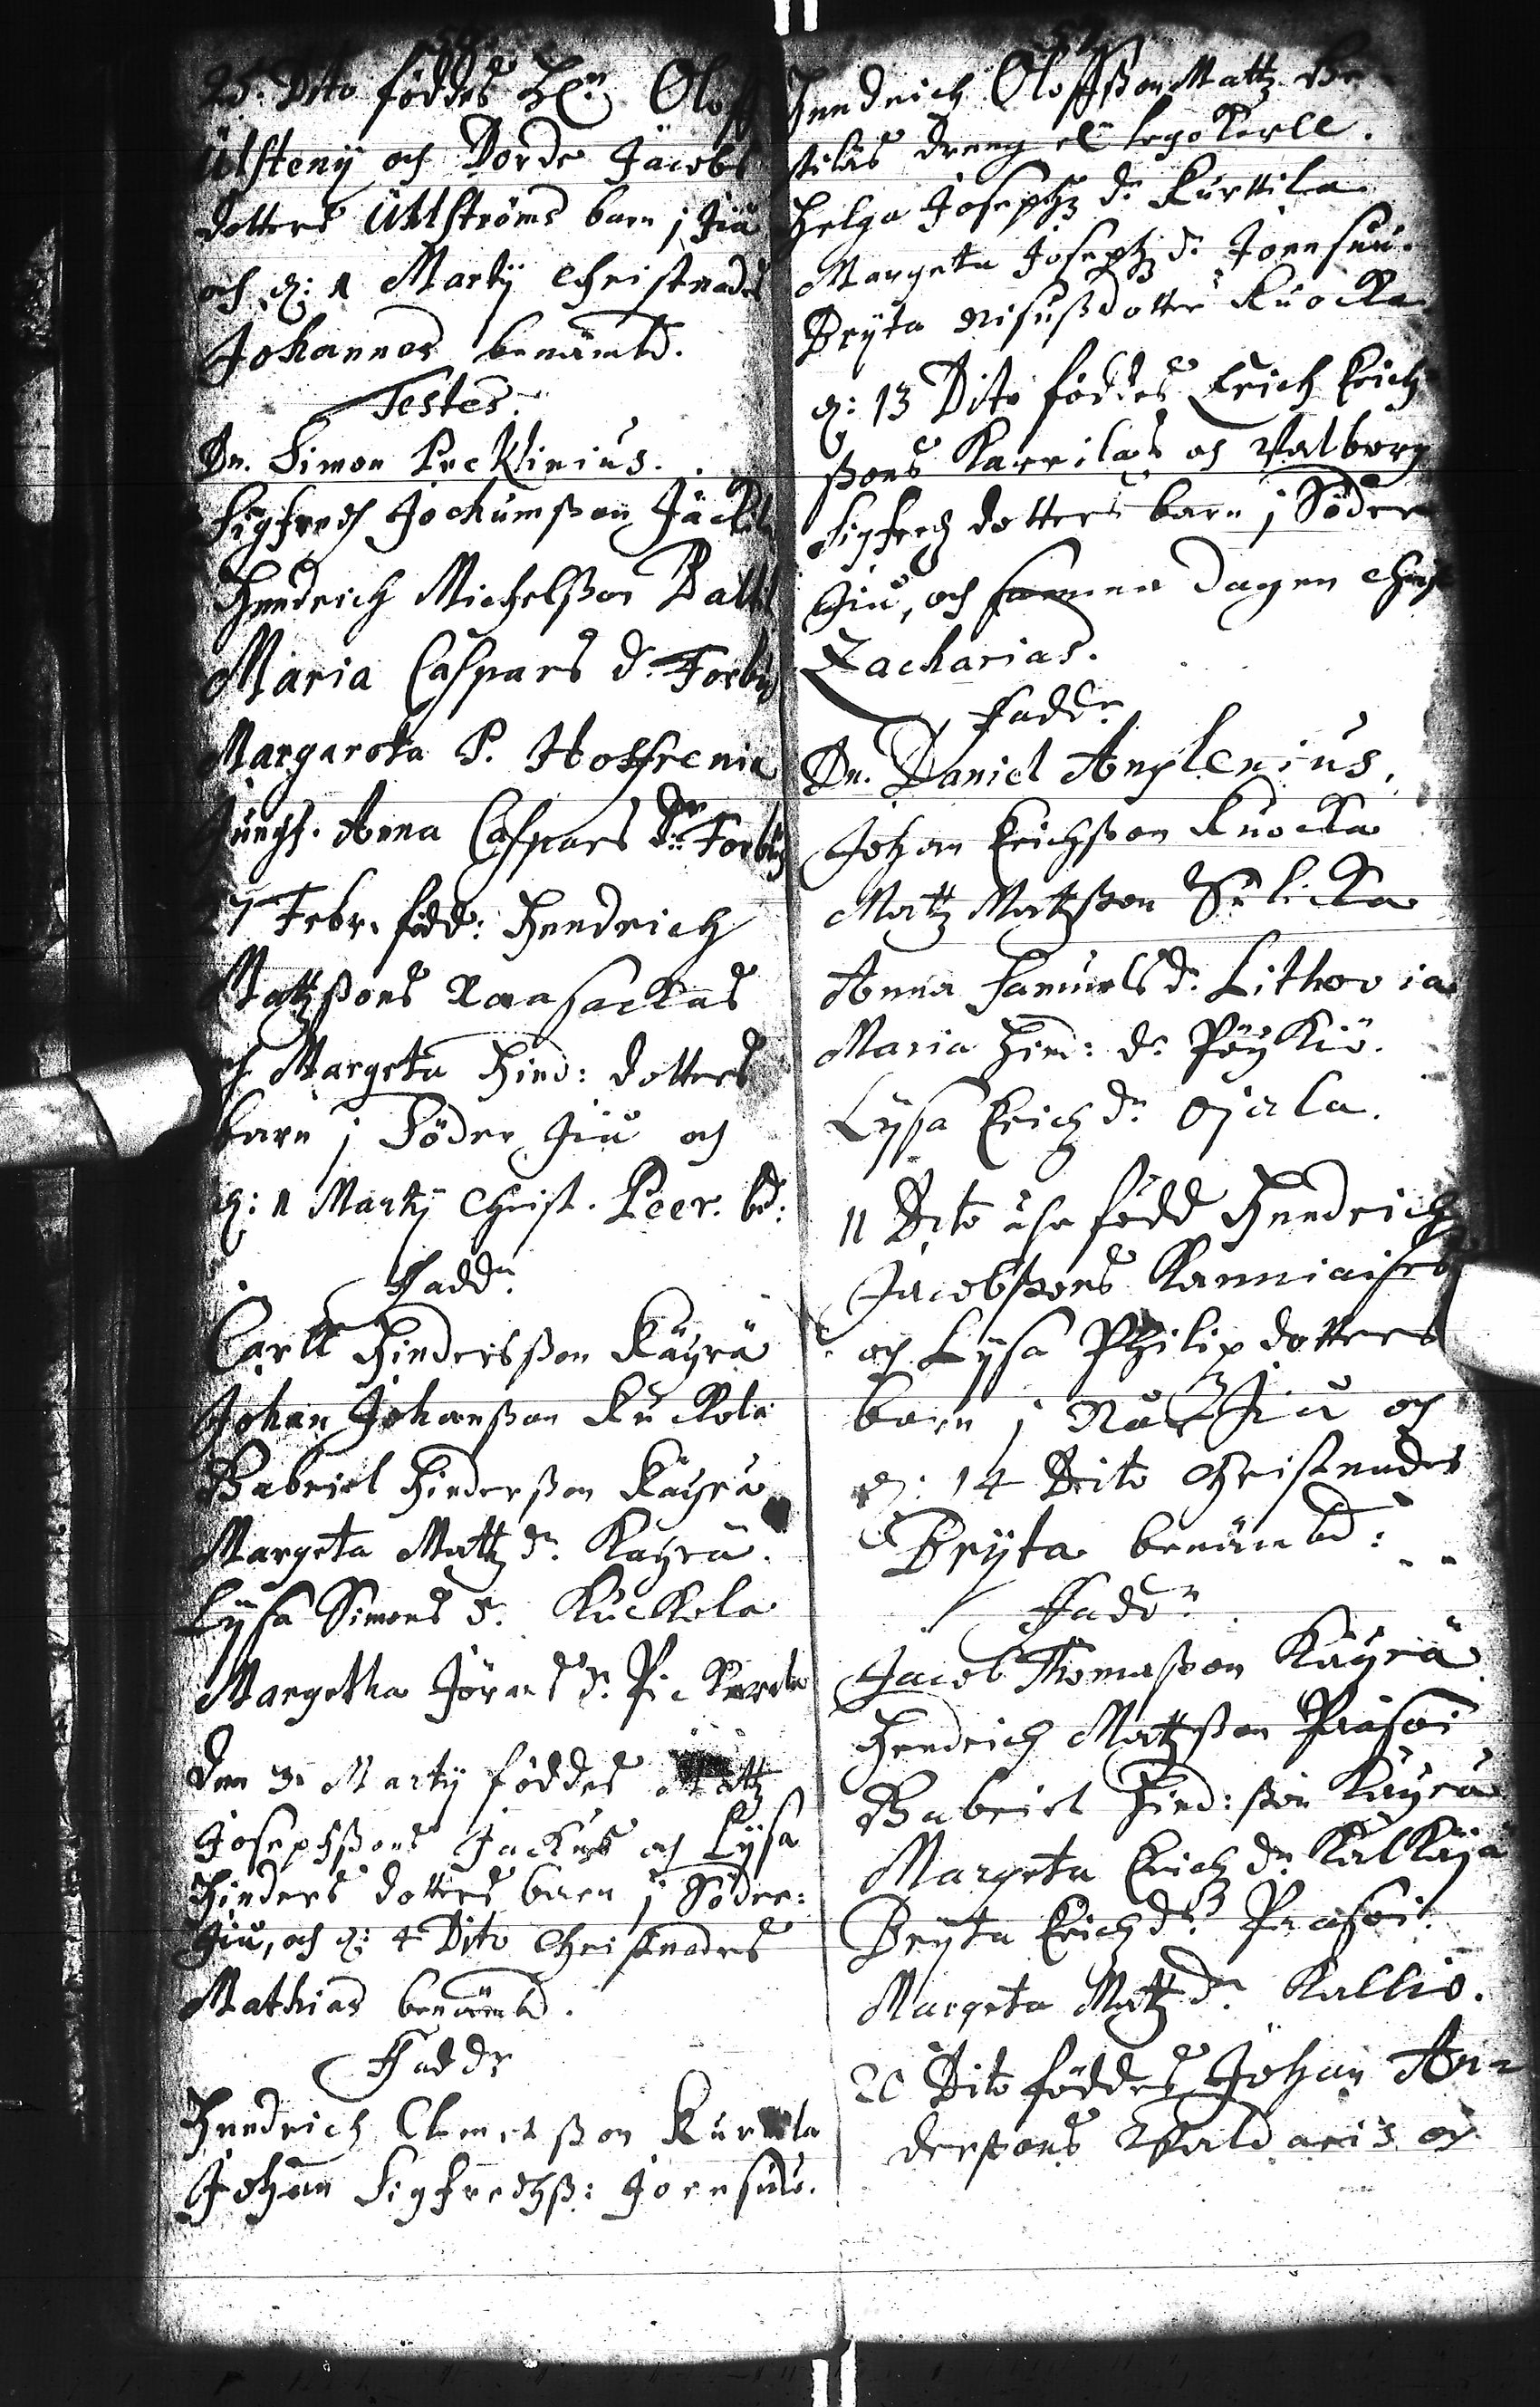 25. Dito föddes H:n Oloff
Ulstenij och Dorde Jacobs
dotters Uhlströms barn j Jiu
och d: 1 Martij Christnades
Johannes benämbd.
Testes.
Dn. Simon Precklinius.
Sigfredh Jochumßon Jäckel
Hendrich Michelßon Battil
Maria Caspars d:r Forbus
Margareta P. Hoffrenia
Jungf. Anna Caspars d:r Forbus
27 Febr. född: Hendrich
Matzßons Raasackas
och Margeta Hind: dotters
barn j Söder Jiu och
d: 1 Martij Christ. Peer. bd:
Fadd:r
Carll Hindersßon Käyrä
Johan Johanßon Kuckola
Gabriel Hinderßon Käyrä
Margeta Mattz d:r Käyrä.
Lysa Simons d:r Kuckola
Margetha Jörans d:r
Den 3. Martij föddes Mattz
Josephßons Jackus och Lysa
Hinders dotters barn j Söder:
Jiu, och d: 4 Dito Christnades
Mathias benämbd.
Fadd:r
Hendrich Clemetßon Kurtila
Johan Sigfredhß: Joensuu.
Hendrich Oloffßon Mattz
drang el legokarll.
Helga Josephz d:r Kurttila
Margeta Josephz d:r Joensuu.
Bryta Nisußdotter Kuocka
d: 13 Dito föddes Erich Erich
ßons Karrilas och Valborg
Sigfredz dotters barn j Söder
Jiu, och samma dagen Christ
Zacharias.
Fadd:r
Dn. Daniel Anglenius.
Johan Erichßon Kuocka
Mattz Mattzßon
Anna Samuels d:r Lithovia
Maria Hind: d:r Pöykiö.
Lysa Erich d:r Ojala.
11 Dito född Hendrich
Jacobßons Kanniaises
och Lysa Philip dotters
barn j Når Jiu och
d: 14 Dito Christnades
Bryta benämbd:
Fadd:r
Jacob Thomaßon Käyrä
Hendrich Mattzßon Präsoi
Gabriel Hind:ßon Käyrä
Margeta Erich d:r Kälkäjä
Bryta Erich d:r Präsoi.
Margeta Mattz d:r Kallio.
20 Dito föddes Johan An=
derßons Waldaris och